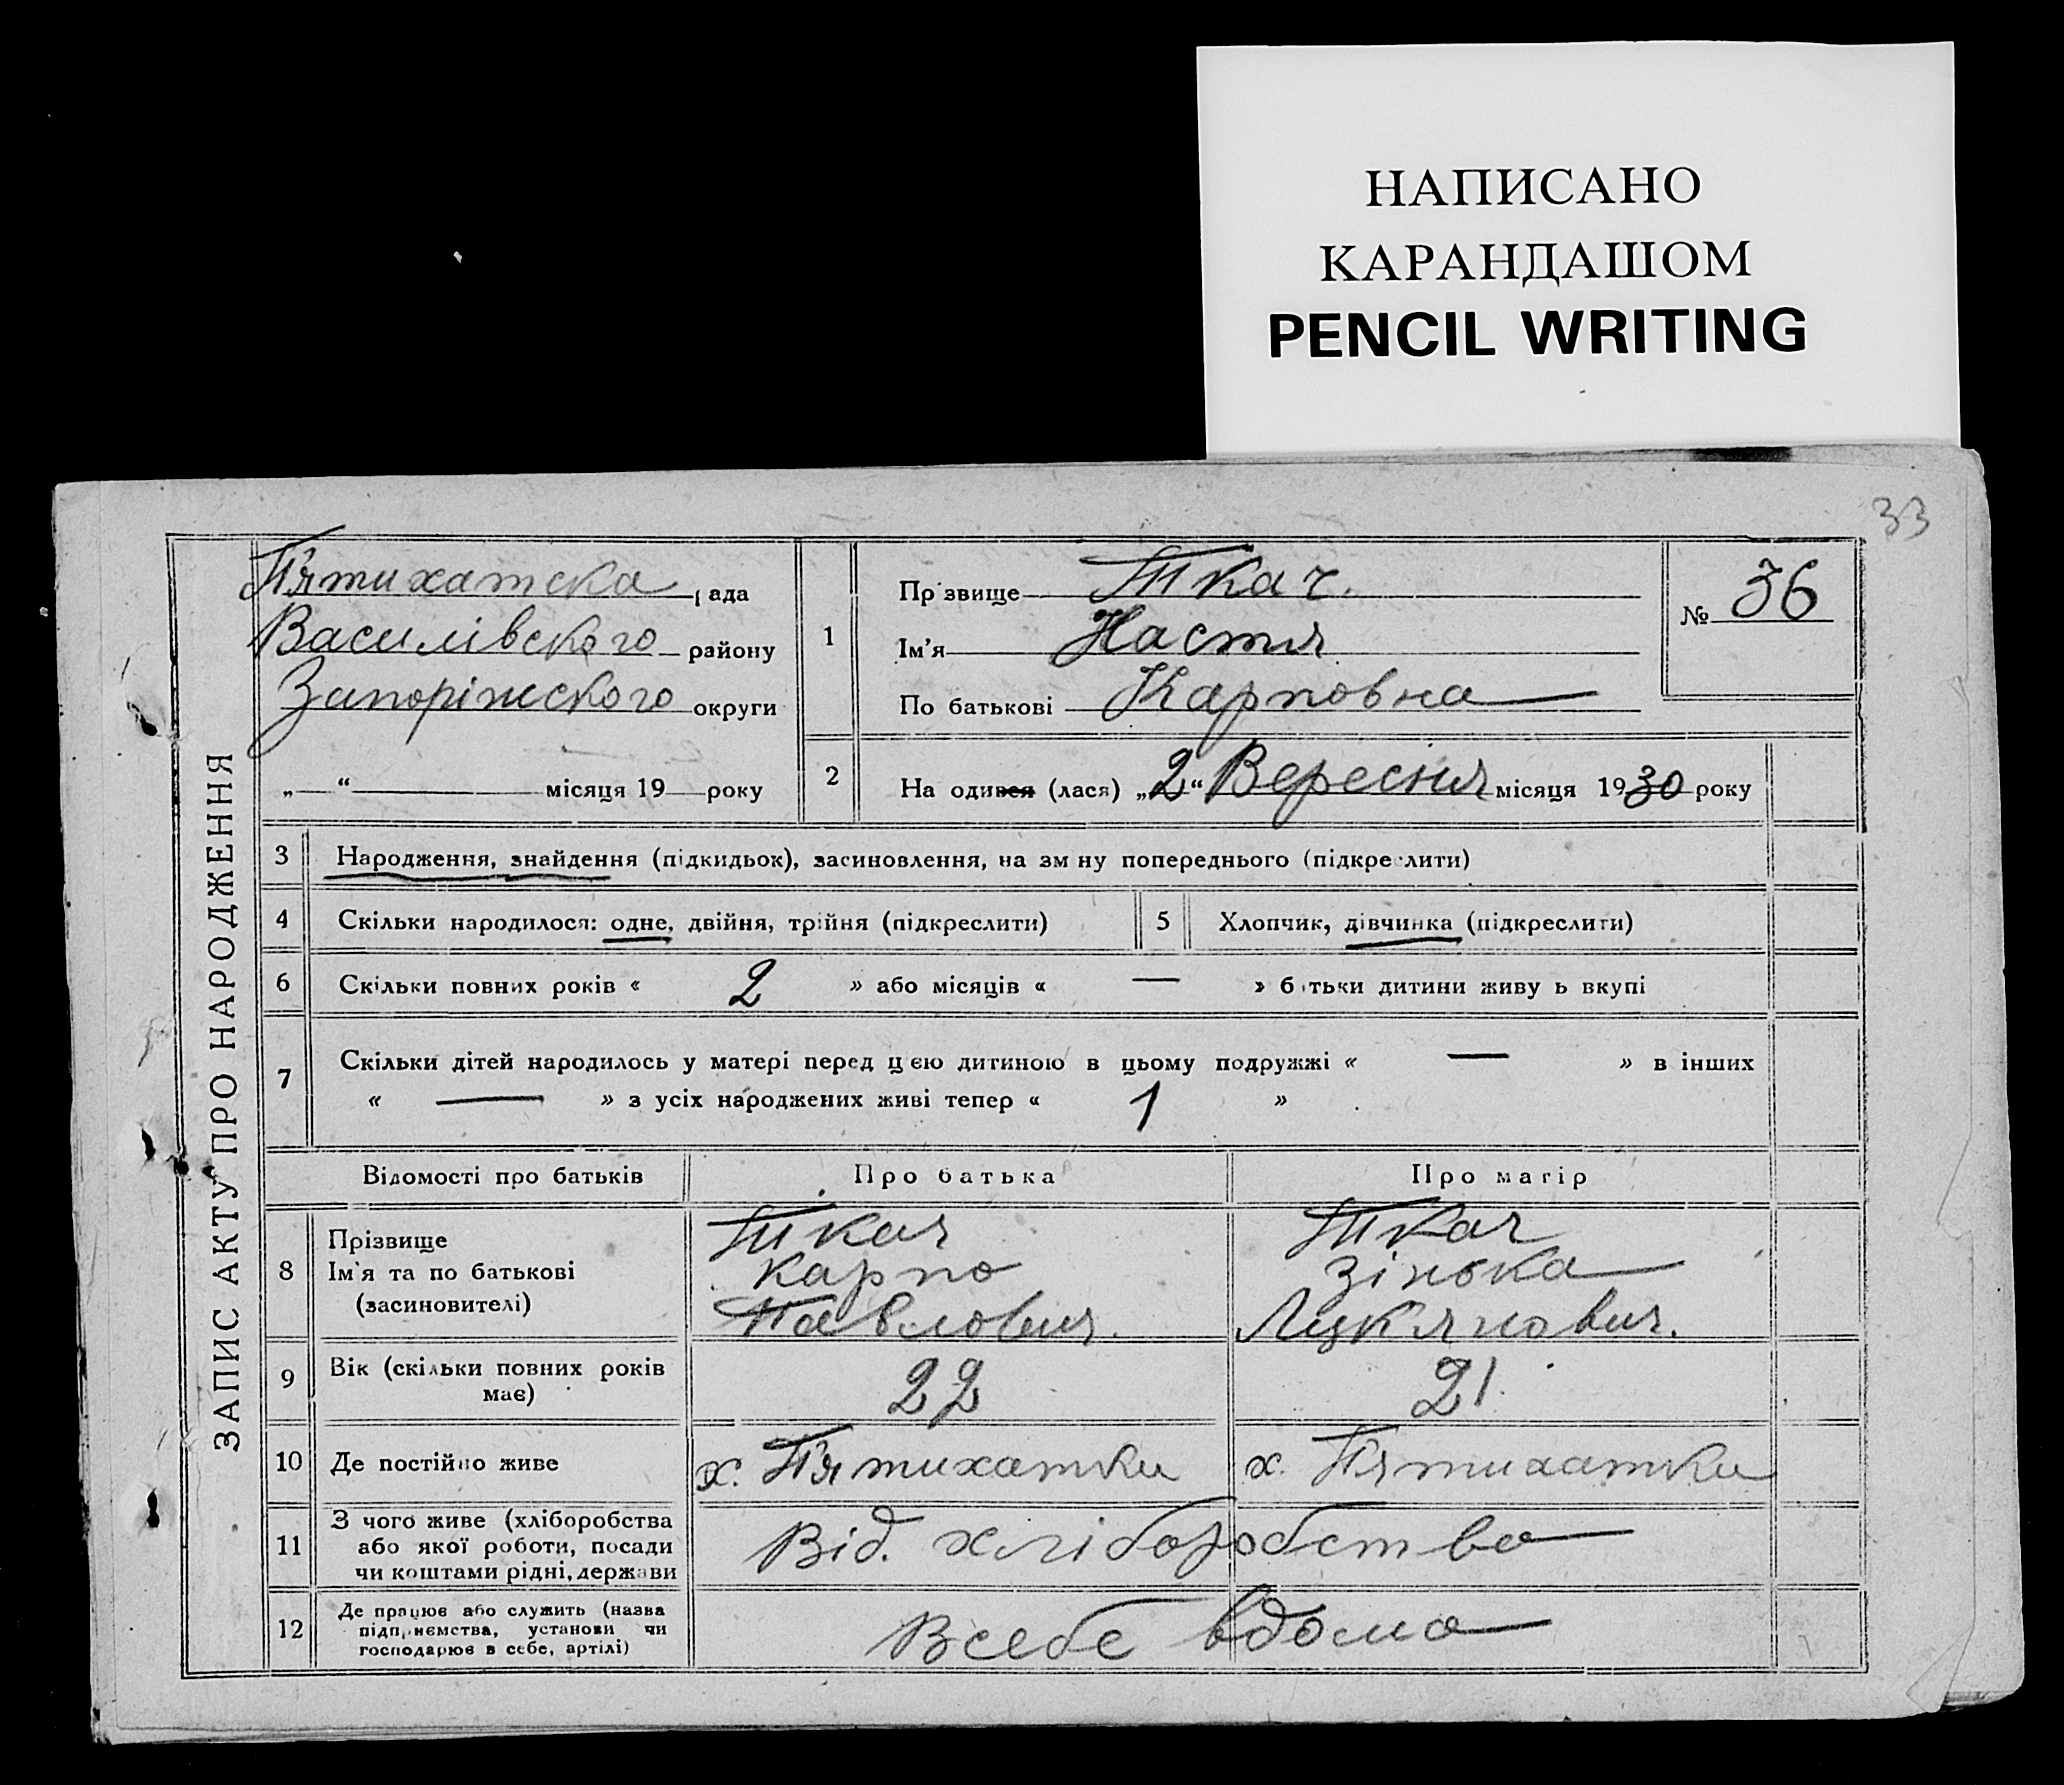 НАПИСАНО
КАРАНДАШОМ
PENCIL WRITING
33
ЗАПИС АКТУ ПРО НАРОДЖЕННЯ
П'ятихатска рада
Василівского району
Запоріжского округи
„ “ місяця 19 року
1
Прізвище Ткач.
Ім'я Настя
По батькові Карповна
№ 36
2
На одився (лася) „2“ Вересня місяця 1930 року
3 Народження, знайдення (підкидьок), засиновлення, на зміну попереднього (підкреслити)
4 Скільки народилося: одне, двійня, трійня (підкреслити)
5 Хлопчик, дівчинка (підкреслити)
6 Скільки повних років « 2 » або місяців « — » батьки дитини живуть вкупі
7 Скільки дітей народилось у матері перед цією дитиною в цьому подружжі « — » в інших
« — » з усіх народжених живі тепер « 1 »
Відомості про батьків Про батька Про матір
8 Прізвище
Ім'я та по батькові
(засиновителі)
Ткач
Карпо
Павлович.
Ткач
Зінька
Лукянович.
9 Вік (скільки повних років
має)
22 21.
10 Де постійно живе х. П'ятихатки х. П'ятихатки
11 З чого живе (хліборобства
або якої роботи, посади
чи коштами рідні, держави
Від. хліборобства
12 Де працює або служить (назва
підприємства, установи чи
господарює в себе, артілі)
В себе вдома